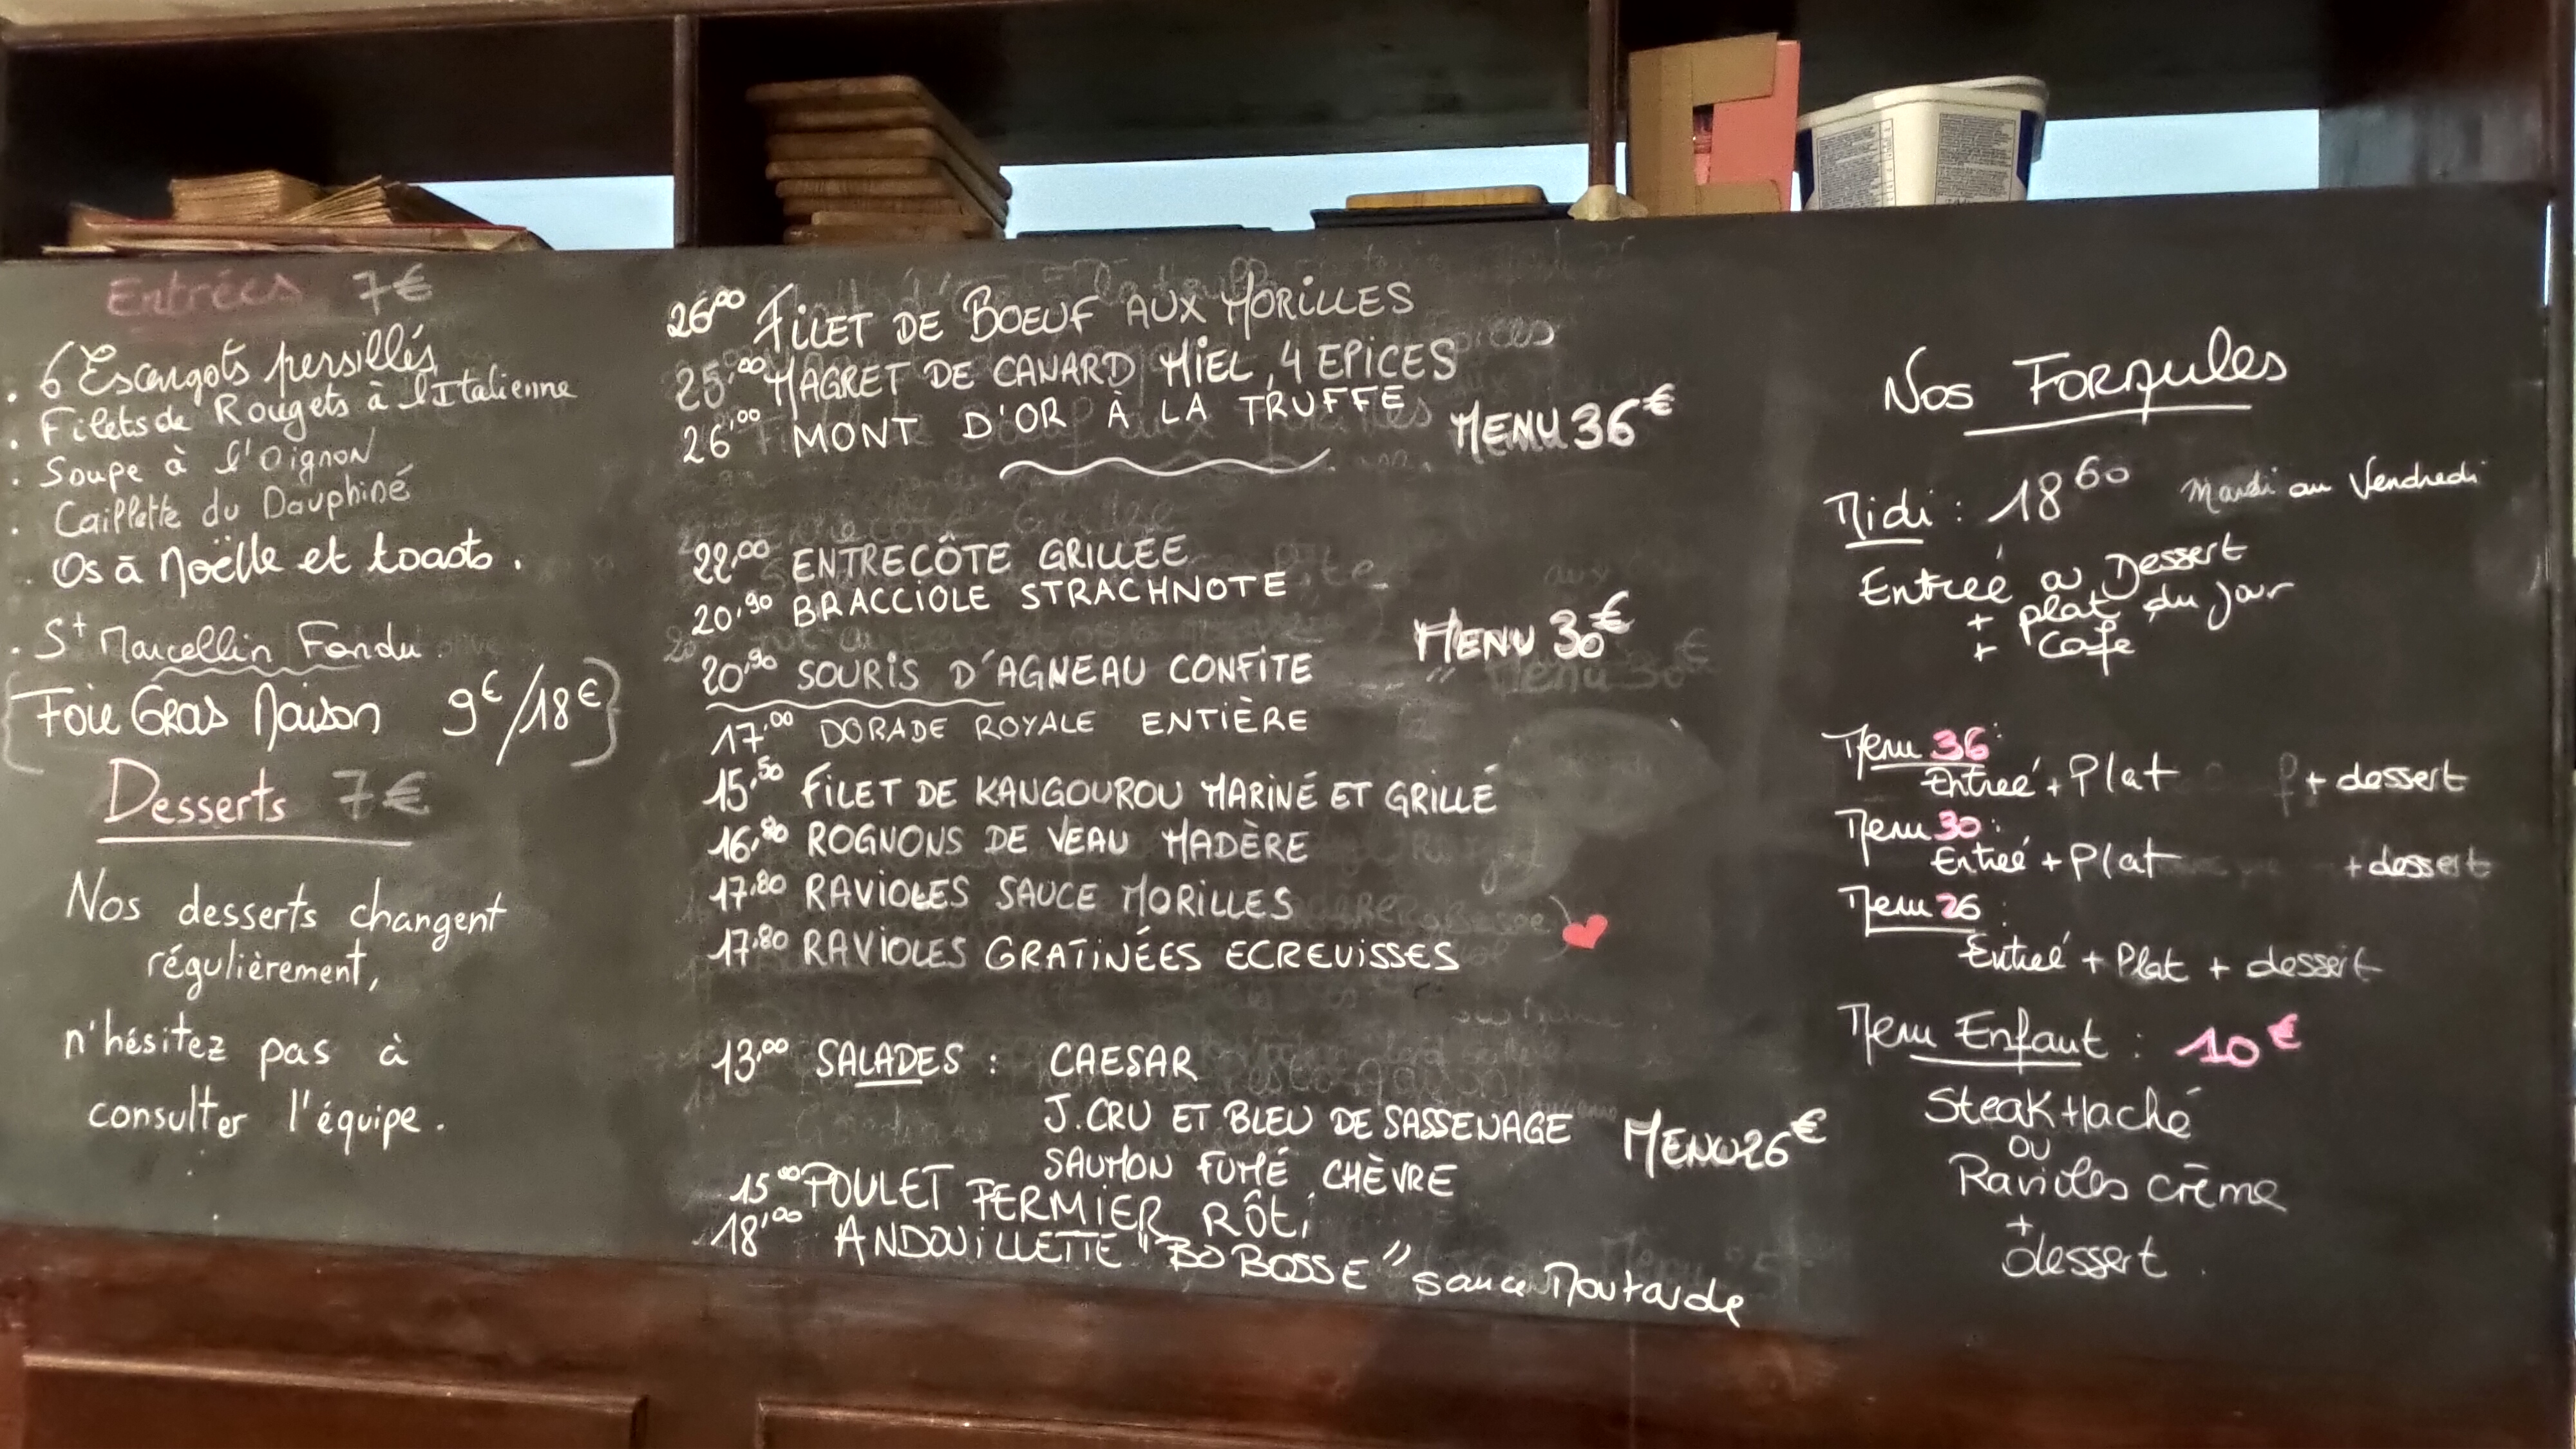 Entrées 7€
. 6 Escargots persillés
. Filets de Rougets à l'Italienne
. Soupe à l'Oignon
. Caillette du Dauphiné
. Os à Moëlle et toasts.
. St Marcellin Fondu.
Foie Gras Maison 9€/18€
Desserts 7€
Nos desserts changent
régulièrement,
n'hésitez pas à
consulter l'équipe.
26,00 FILET DE BOEUF AUX MORILLES
25,00 MAGRET DE CANARD MIEL, 4 EPICES
26,00 MONT D'OR À LA TRUFFE
MENU 36€
22,00 ENTRECÔTE GRILLÉE
20,90 BRACCIOLE STRACHNOTE
20,90 SOURIS D'AGNEAU CONFITE
MENU 30€
17,00 DORADE ROYALE ENTIÈRE
15,50 FILET DE KANGOUROU MARINÉ ET GRILLÉ
16,80 ROGNONS DE VEAU MADÈRE
17,80 RAVIOLES SAUCE MORILLES
17,80 RAVIOLES GRATINÉES ECREVISSES
13,00 SALADES : CAESAR
J.CRU ET BLEU DE SASSENAGE
SAUMON FUMÉ, CHÈVRE
MENU 26€
15,00 POULET FERMIER RÔTI
18,00 ANDOUILLETTE "BOBOSSE" sauce Moutarde
Nos FORMules
Midi : 18 60 Mardi au Vendredi
Entreé ou Dessert
+ plat du jour
+ Café
Menu 36 :
Entreé + Plat + dessert
Menu 30 :
Entreé + Plat + dessert
Menu 26 :
Entreé + Plat + dessert
Menu Enfant : 10€
Steak Haché
ou
Ravioles crème
+
dessert.